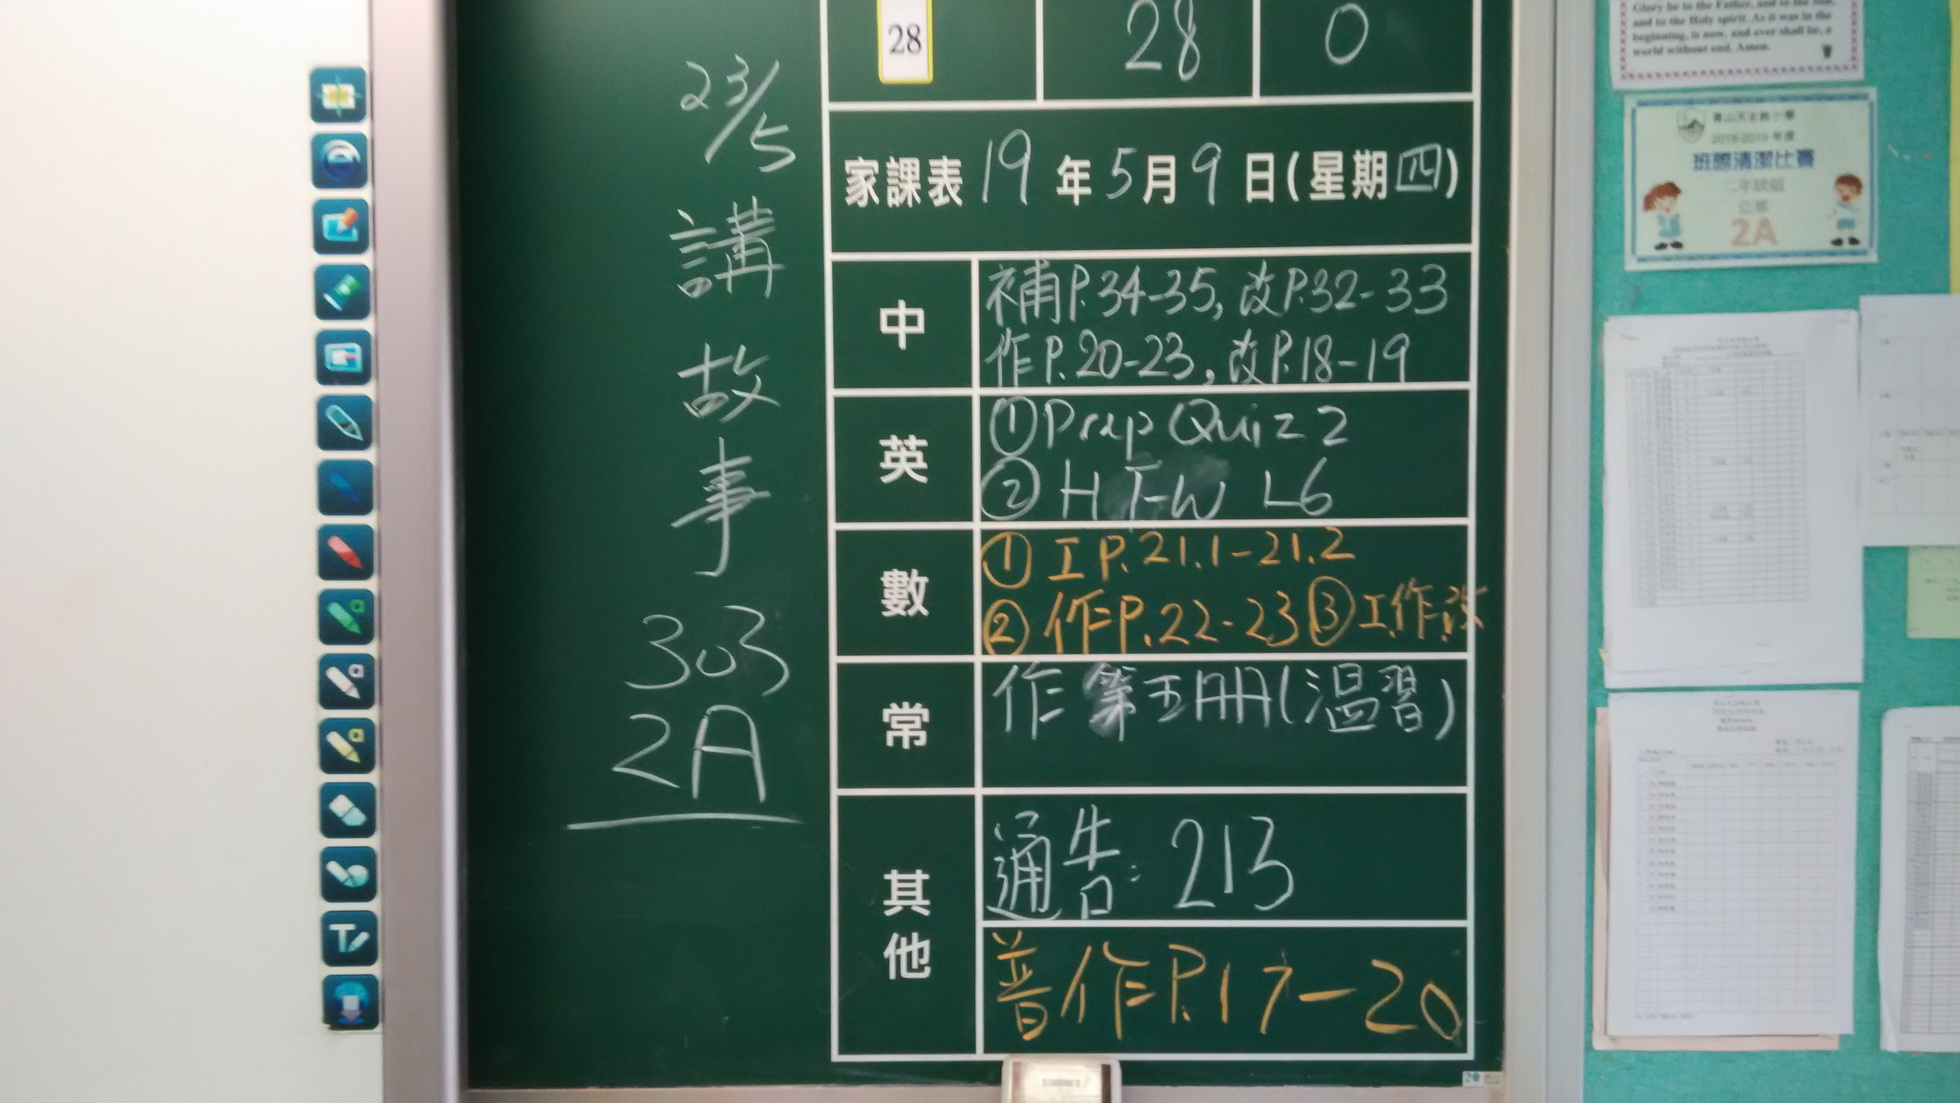 28 28 0
23/5
講
故
事
303
2A
家課表 19年5月9日(星期四)
中
補P.34-35, 改P.32-33
作P.20-23, 改P.18-19
英
① Prep Quiz 2
② HTW L6
數
① 工P.21.1-21.2
② 作P.22-23 ③ 工作改
常
作 第五冊(溫習)
其他
通告: 213
普作P.17-20
Glory be to the Father, and to the Son,
and to the Holy spirit. As it was in the
beginning, is now, and ever shall be, a
world without end. Amen.
青山天主教小學
2018-2019 年度
班際清潔比賽
二年級組
2A